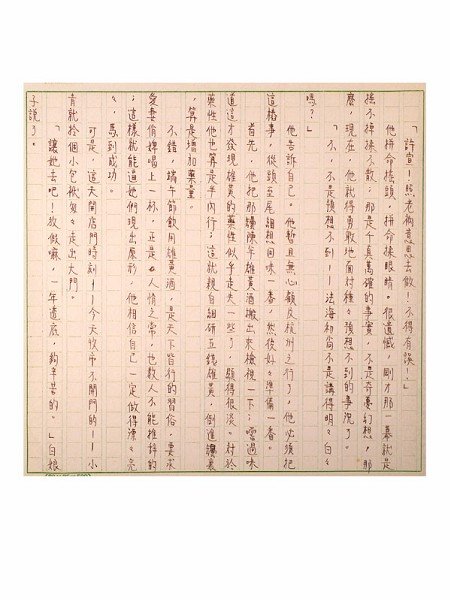 「許宣！照老衲意思去做！不得有誤！」
他拼命搖頭，拼命揉眼睛。很遺憾，剛才那一幕就是
搖不掉揉不散；那是千真萬確的事實，不是奇夢幻想，那
麼，現在，他就得勇敢地面對種々預想不到的事況了。
「不，不是預想不到——法海和尚不是講得明々白々
嗎？」
他告訴自己。他暫且無心顧及杭州之行了，他必須把
這樁事，從頭至尾細想回味一番，然後好々準備一番。
首先，他把那罈陳年雄黃酒搬出來檢視一下；嚐過味
道這才發現雄黃的藥性似乎走失一些了，顯得很淡。對於
藥性他也算是半內行；這就親自細研五錢雄黃，倒進罈裏
，算是增加藥量。
不錯，端午節飲用雄黃酒，是天下皆行的習俗，要求
愛妻俏婢喝上一杯，正是人情之常，也教人不能推拌的
；這樣就能逼她們現出原形，他相信自己一定做得漂々亮
々，馬到成功。
可是，這天開店門時刻——今天收市不開門的——小
青就拎個小包袱匆々走出大門。
「讓她去吧！放假嘛，一年邊底，夠辛苦的。」白娘
子說了。